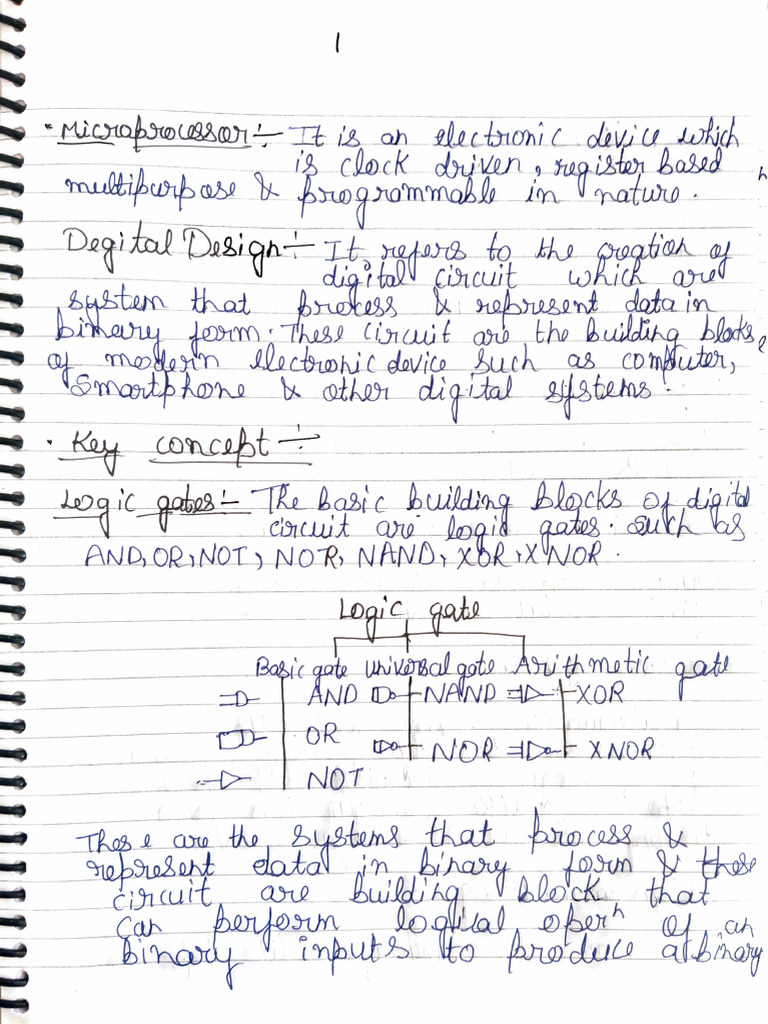 1
• Microprocessor :- It is an electronic device which
is clock driven, register based
multipurpose & programmable in nature.
Degital Design :- It, refers to the creation of
digital circuit which are
system that process & represent data in
binary form. These circuit are the building blocks
of modern electronic device such as computer,
Smartphone & other digital systems.
• Key concept :-
Logic gates :- The basic building blocks of digital
circuit are logic gates. Such as
AND, OR, NOT, NOR, NAND, XOR, XNOR.
Logic gate
Basic gate Universal gate Arithmetic gate
AND NAND XOR
OR NOR XNOR
NOT
These are the systems that process &
represent data in binary form & these
circuit are building block that
can perform logical operⁿ of an
binary inputs to produce a binary